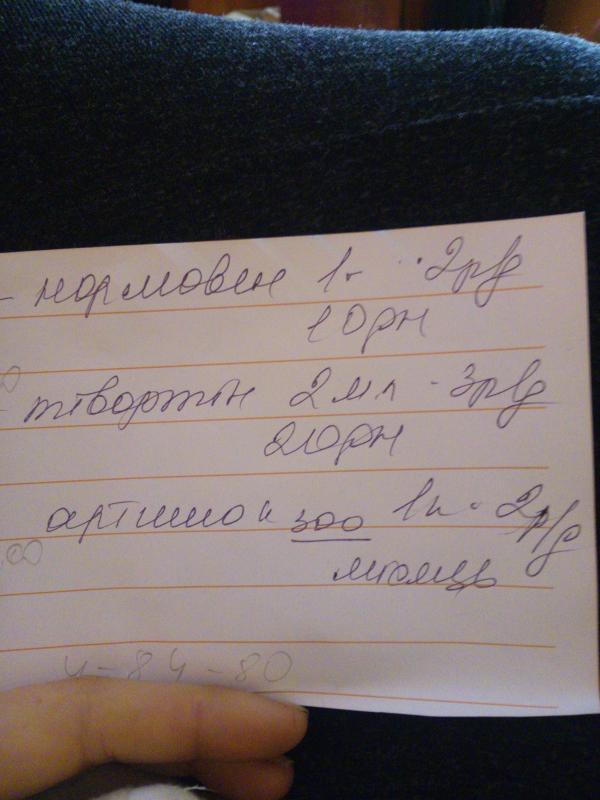 - нормовен 1т · 2р/д
10 дн
- тівортін 2 мл - 3р/д
20 дн
артишок 300 1к · 2р/д
місяць
4-84-80